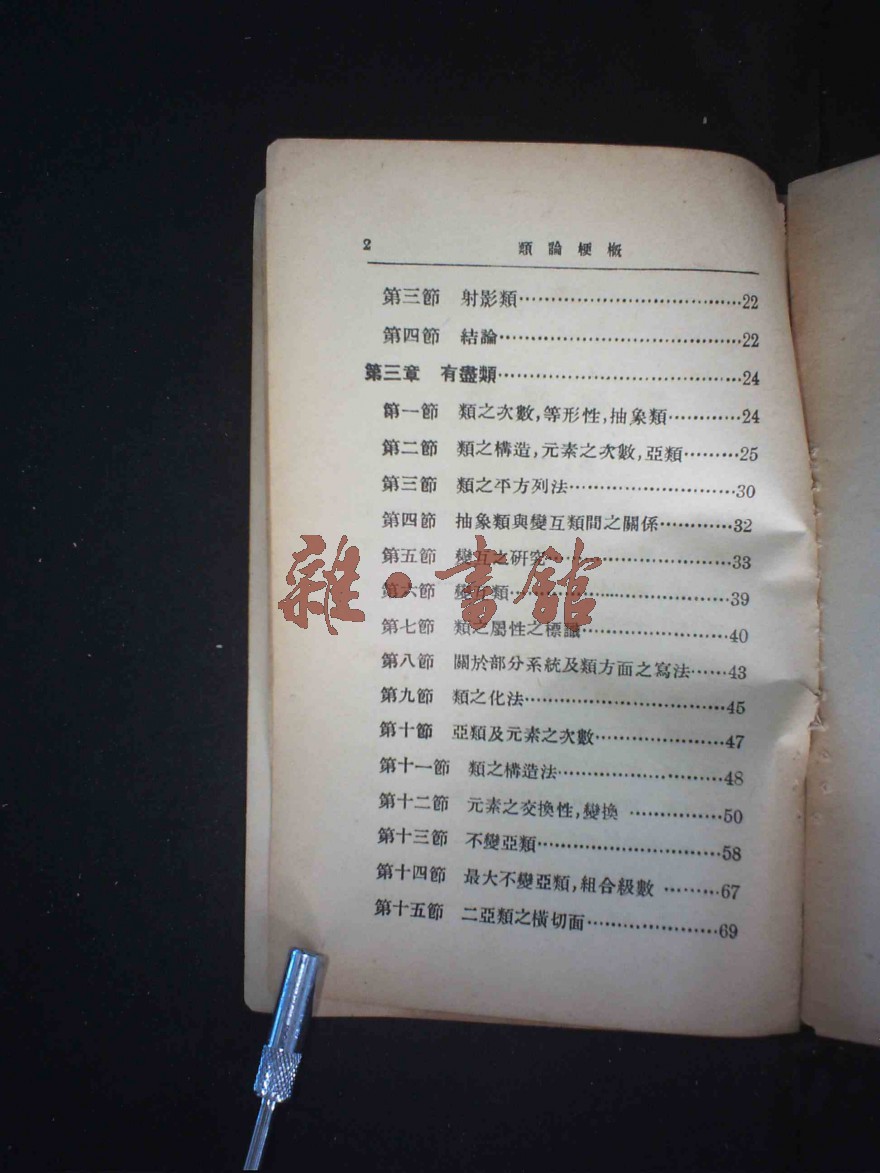 2 類論梗概
第三節 射影類……………………………22
第四節 結論………………………………22
第三章 有盡類……………………………24
第一節 類之次數,等形性,抽象類…………24
第二節 類之構造,元素之次數,亞類………25
第三節 類之平方列法………………………30
第四節 抽象類與變互類間之關係…………32
第五節 變互之研究…………………………33
第六節 變互類………………………………39
第七節 類之屬性之標識……………………40
第八節 關於部分系統及類方面之寫法……43
第九節 類之化法……………………………45
第十節 亞類及元素之次數…………………47
第十一節 類之構造法………………………48
第十二節 元素之交換性,變換 ……………50
第十三節 不變亞類…………………………58
第十四節 最大不變亞類,組合級數 ………67
第十五節 二亞類之橫切面…………………69
雜·書館